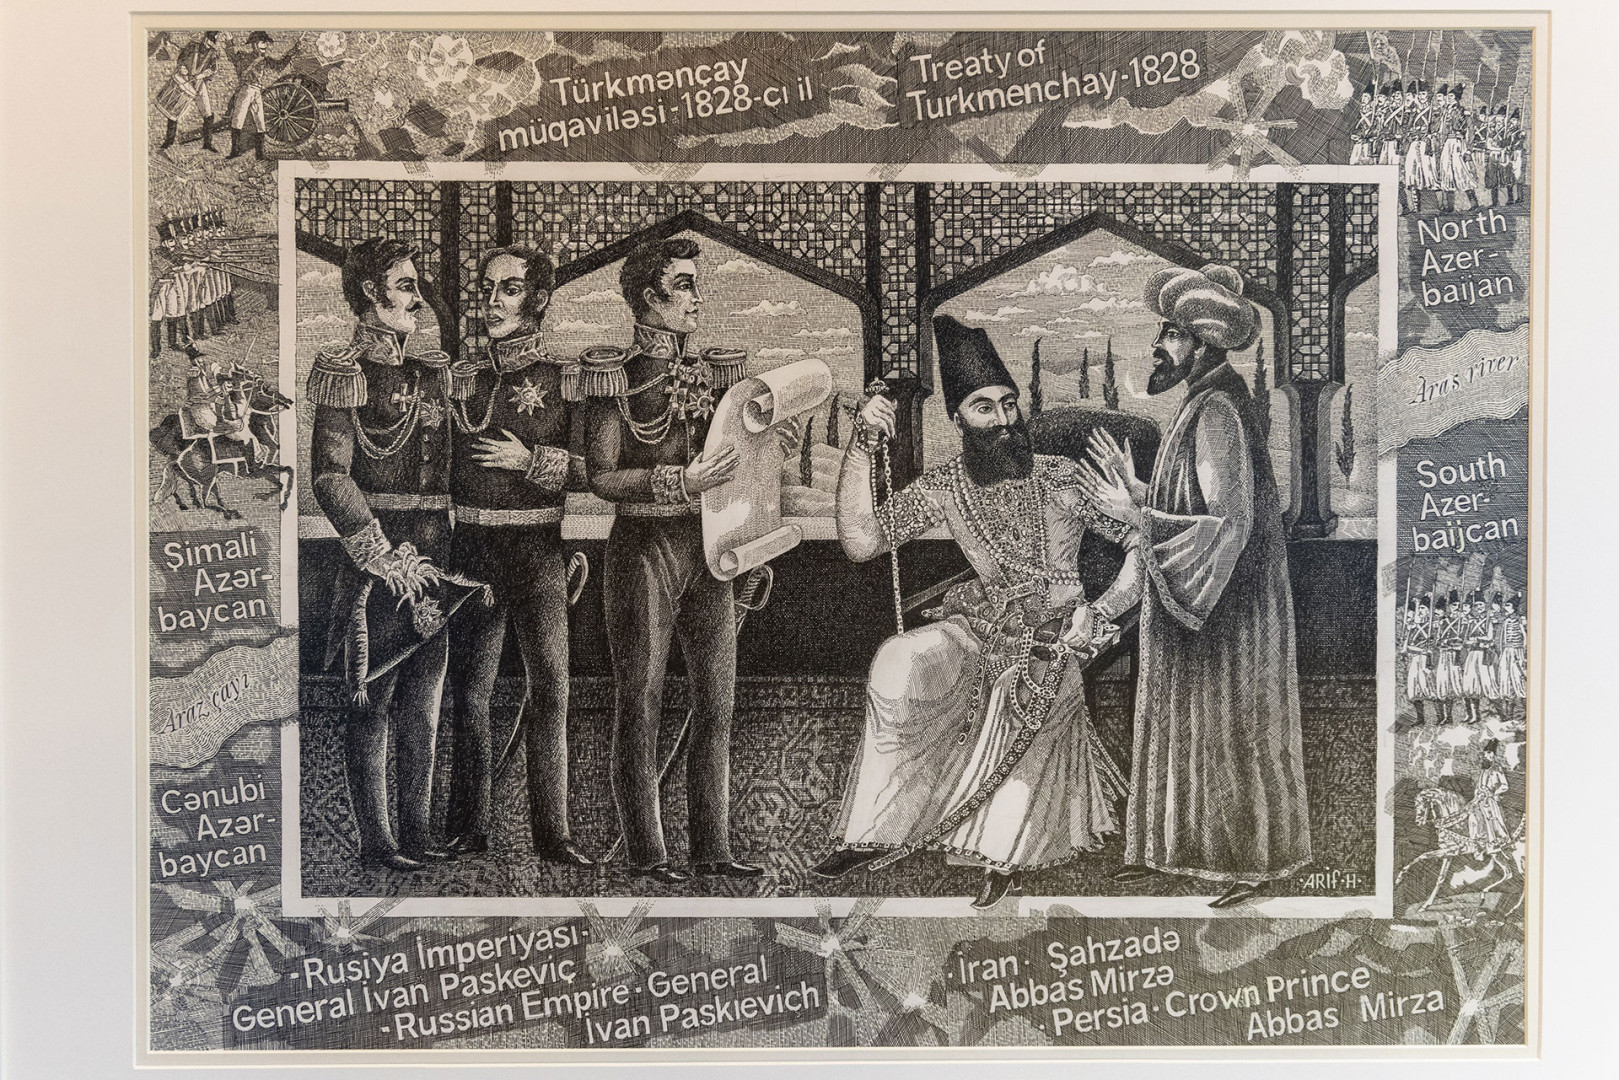 Türkmənçay
müqaviləsi-1828-çı il
Treaty of
Turkmenchay-1828
North
Azer-
baijan
Aras river
South
Azer-
baijcan
Şimali
Azər-
baycan
Araz çayı
Cənubi
Azər-
baycan
·ARIF·H·
-Rusiya İmperiyası-
General İvan Paskeviç
-Russian Empire·General
İvan Paskıevich
·İran· Şahzadə
Abbas Mirzə
·Persia·Crown Prince
Abbas Mirza